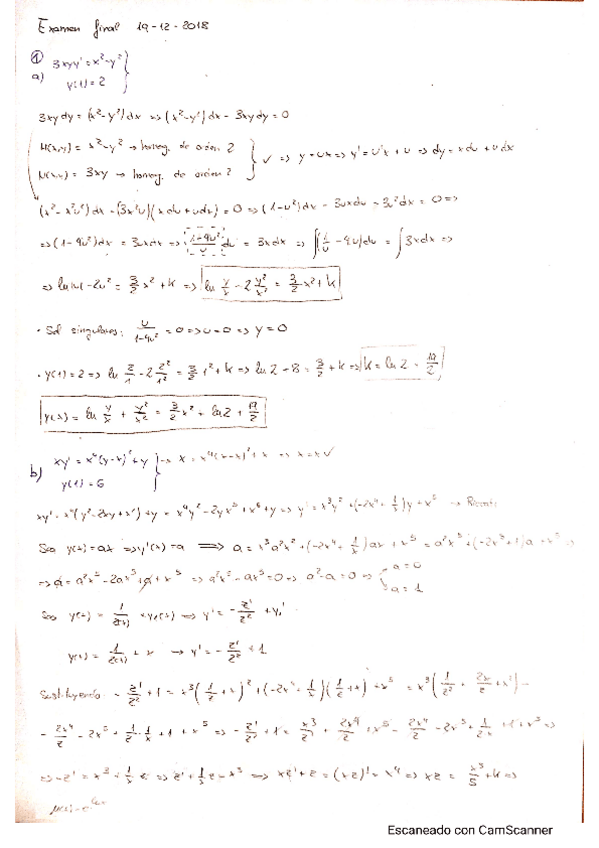 Examen final 19-12-2018
① 3xyy' = x²-y² }
a) y(1) = 2
3xy dy = (x²-y²)dx => (x²-y²)dx - 3xy dy = 0
M(x,y) = x²-y² → homog. de orden 2 } ✓ => y = ux => y' = u'x + u => dy = x du + u dx
N(x,y) = 3xy → homog. de orden 2
(x²-x²u²)dx - (3x²u)(x du + u dx) = 0 => (1-u²)dx - 3ux du - 3u² dx = 0 =>
=> (1-4u²)dx = 3ux dx => (1-4u²)/u du = 3x dx => ∫(1/u - 4u)du = ∫3x dx =>
=> ln|u| - 2u² = 3/2 x² + k => ln y/x - 2 y²/x² = 3/2 x² + k
· Sol singulares: u/(1-4u²) = 0 => u = 0 => y = 0
· y(1) = 2 => ln 2/1 - 2 2²/1² = 3/2 1² + k => ln 2 - 8 = 3/2 + k => k = ln 2 - 19/2
y(x) = ln y/x + y²/x² = 3/2 x² + ln 2 + 19/2
b) xy' = x⁴(y-x)² + y } → x = x⁴(x-x)² + x => x = x ✓
y(1) = 6
xy' = x⁴(y²-2xy+x²) + y = x⁴y² - 2yx⁵ + x⁶ + y => y' = x³y² + (-2x⁴ + 1/x)y + x⁵ → Riccati
Sea y(x) = ax => y'(x) = a => a = x³a²x² + (-2x⁴ + 1/x)ax + x⁵ = a²x⁵ + (-2x⁵+1)a + x⁵ =>
=> a = a²x⁵ - 2ax⁵ + a + x⁵ => a²x⁵ - ax⁵ = 0 => a²-a = 0 => a = 0
a = 1
Sea y(x) = 1/z(x) + y₁(x) => y' = -z'/z² + y₁'
y(x) = 1/z(x) + x → y' = -z'/z² + 1
Sustituyendo - z'/z² + 1 = x³(1/z + x)² + (-2x⁴ + 1/x)(1/z + x) + x⁵ = x³(1/z² + 2x/z + x²) -
- 2x⁴/z - 2x⁵ + 1/z · 1/x + 1 + x⁵ => - z'/z² + 1 = x³/z² + 2x⁴/z + x⁵ - 2x⁴/z - 2x⁵ + 1/zx + 1 + x⁵ =>
=> -z' = x³ + 1/x z => z' + 1/x z = -x³ => xz' + z = (xz)' = x⁴ => xz = x⁵/5 + k =>
Escaneado con CamScanner